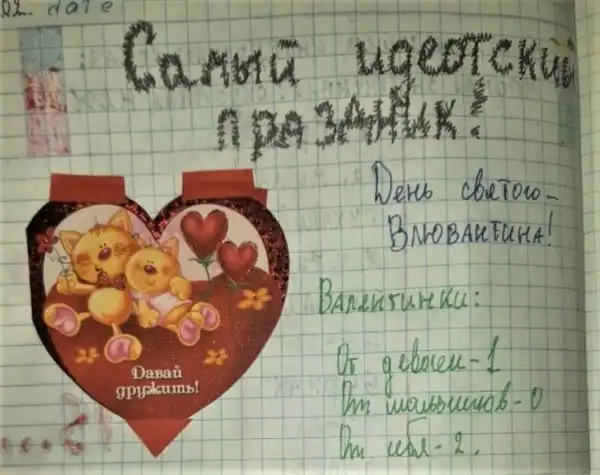 02. date
Самый идеотский
праздник!
День святого-
Влюбантина!
Давай
дружить!
Валентинки:
От девочек - 1
От мальчиков - 0
От себя - 2.